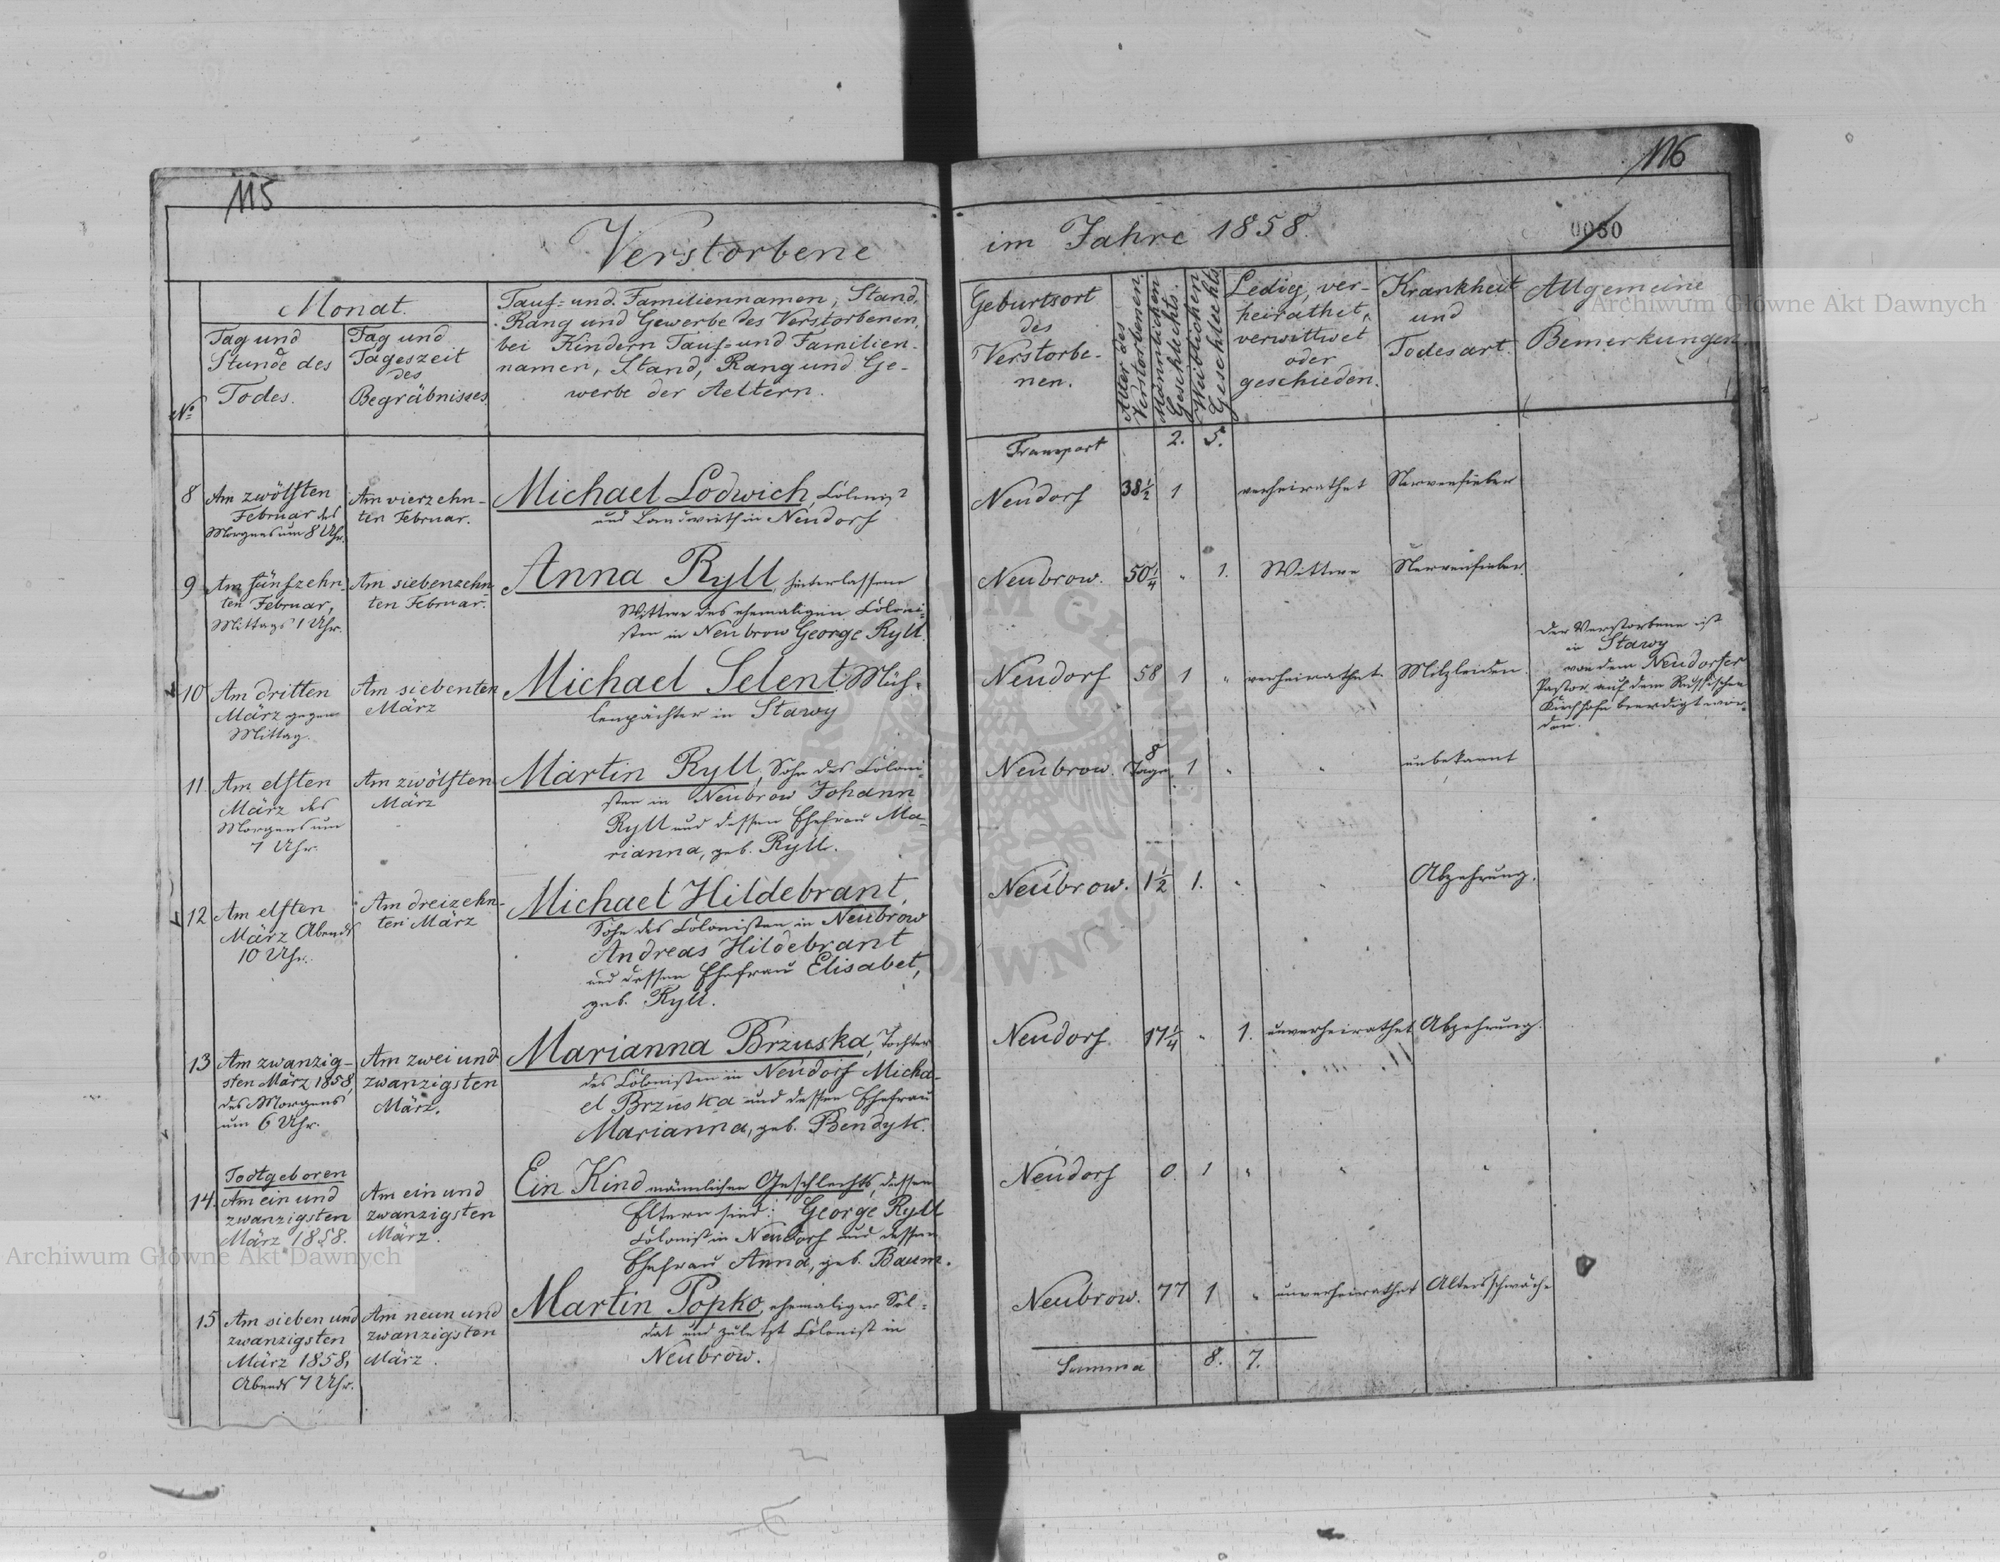 115
116
Verstorbene
im Jahre 1858.
0050
Archiwum Główne Akt Dawnych
No
Monat.
Tag und
Stunde des
Todes.
Tag und
Tageszeit
des
Begräbnisses
Tauf= und Familiennamen, Stand,
Rang und Gewerbe des Verstorbenen,
bei Kindern Tauf= und Familien-
namen, Stand, Rang und Ge-
werbe der Aeltern.
Geburtsort
des
Verstorbe-
nen.
Alter des
Verstorbenen.
Männlichen
Geschlechts.
Weiblichen
Geschlechts.
Ledig, ver-
heirathet,
verwittwet
oder
geschieden.
Krankheit
und
Todesart.
Allgemeine
Bemerkungen
Transport 2. 5.
8
Am zwölften
Februar des
Morgens um 8 Uhr.
Am vierzehn-
ten Februar.
Michael Lodwich, Colonist
und Landwirth in Neudorf
Neudorf 38½ 1 verheirathet Nervenfieber
9
Am fünfzehn-
ten Februar,
Mittags 1 Uhr.
Am siebenzehn-
ten Februar.
Anna Ryll, hinterlassene
Wittwe des ehemaligen Coloni-
sten in Neubrow George Ryll.
Neubrow. 50¼ " 1. Wittwe Nervenfieber.
10
Am dritten
März gegen
Mittag.
Am siebenten
März
Michael Selent Müh-
lenpächter in Stawy
Neudorf 58 1 " verheirathet Milzleiden.
Der Verstorbene ist
in Stawy
von dem Neudorfer
Pastor auf dem Russischen
Kirchhofe beerdigt wor-
den.
11
Am elften
März des
Morgens um
7 Uhr.
Am zwölften
März
Martin Ryll, Sohn des Coloni-
sten in Neubrow Johann
Ryll und dessen Ehefrau Ma-
rianna, geb. Ryll.
Neubrow. 8 Tage 1 " " unbekannt
12
Am elften
März Abends
10 Uhr.
Am dreizehn-
ten März
Michael Hildebrant,
Sohn des Colonisten in Neubrow
Andreas Hildebrant
und dessen Ehefrau Elisabet,
geb. Ryll.
Neubrow. 1½ 1. " " Abzehrung.
13
Am zwanzig-
sten März 1858,
des Morgens
um 6 Uhr.
Am zwei und
zwanzigsten
März.
Marianna Brzuska, Tochter
des Colonisten in Neudorf Micha-
el Brzuska und dessen Ehefrau
Marianna, geb. Bendyk.
Neudorf. 17¼ " 1. unverheirathet Abzehrung.
14.
Todtgeboren
Am ein und
zwanzigsten
März 1858.
Am ein und
zwanzigsten
März.
Ein Kind männlichen Geschlechts, dessen
Eltern sind: George Ryll
Colonist in Neudorf und dessen
Ehefrau Anna, geb. Baum.
Neudorf 0. 1 " " "
15
Am sieben und
zwanzigsten
März 1858,
Abends 7 Uhr.
Am neun und
zwanzigsten
März.
Martin Popko, ehemaliger Sol-
dat und zuletzt Colonist in
Neubrow.
Neubrow. 77 1 " unverheirathet Altersschwäche
Summa 8. 7.
Archiwum Główne Akt Dawnych